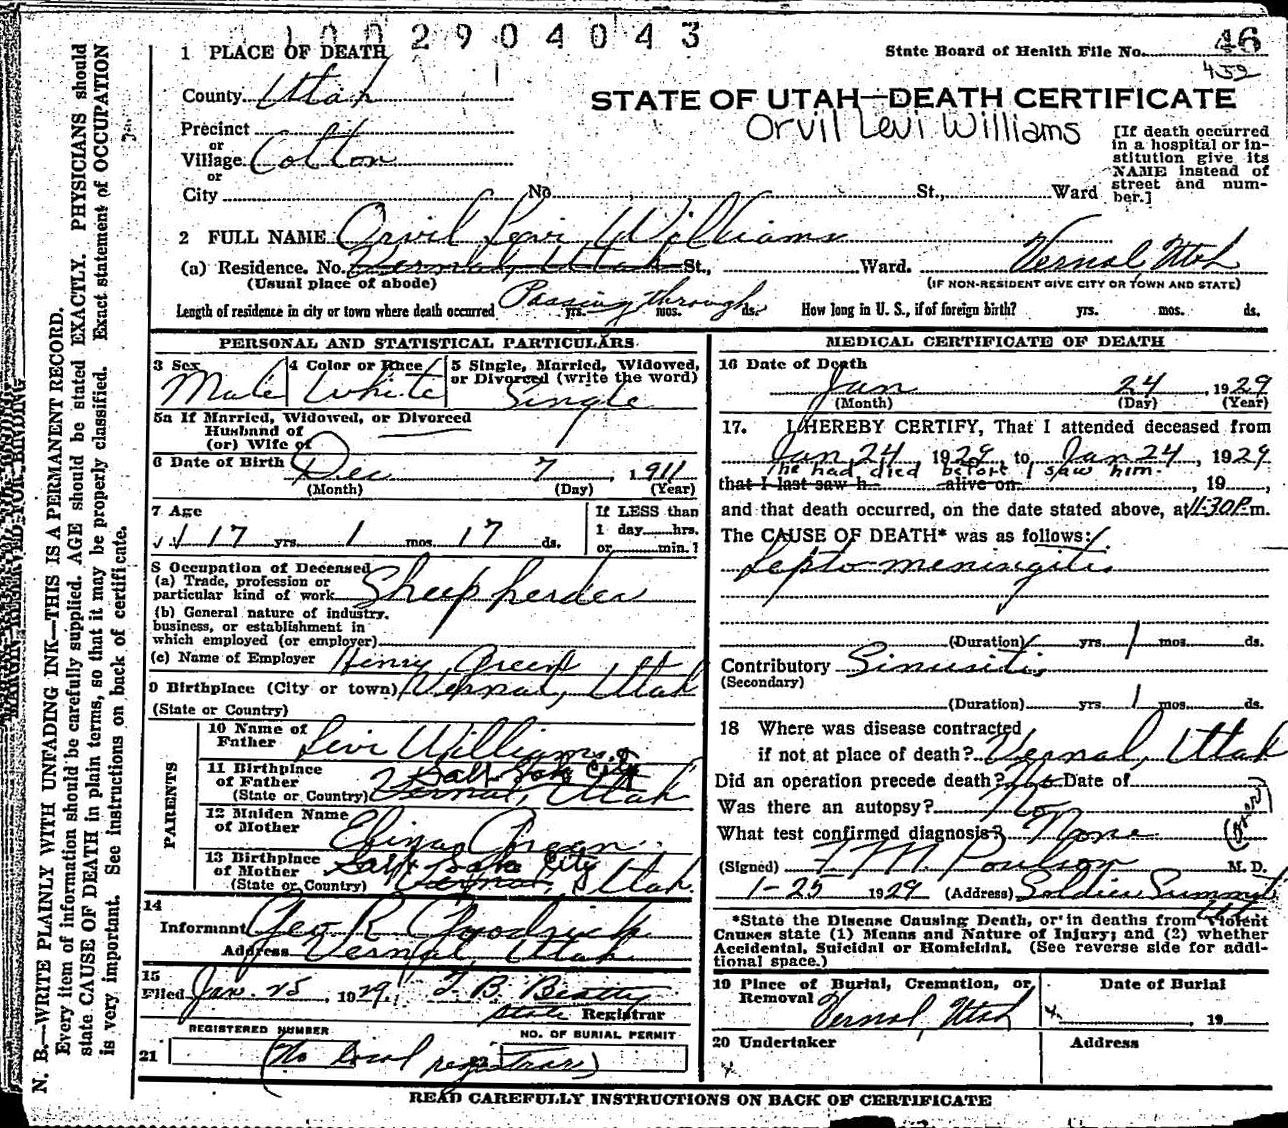 1002904043
1 PLACE OF DEATH
State Board of Health File No. 46
452
County Utah
STATE OF UTAH—DEATH CERTIFICATE
Orvil Levi Williams
Precinct
or
Village Colton
or
City No. St., Ward
[If death occurred
in a hospital or in-
stitution give its
NAME instead of
street and num-
ber.]
2 FULL NAME Orvil Levi Williams
(a) Residence. No. Vernal, Utah St., Ward. Vernal, Utah
(Usual place of abode) (IF NON-RESIDENT GIVE CITY OR TOWN AND STATE)
Length of residence in city or town where death occurred Passing through yrs. mos. ds. How long in U. S., if of foreign birth? yrs. mos. ds.
PERSONAL AND STATISTICAL PARTICULARS
3 Sex Male
4 Color or Race White
5 Single, Married, Widowed,
or Divorced (write the word)
Single
5a If Married, Widowed, or Divorced
Husband of
(or) Wife of
6 Date of Birth Dec 7, 1911
(Month) (Day) (Year)
7 Age
17 yrs. 1 mos. 17 ds.
If LESS than
1 day hrs.
or min.?
8 Occupation of Deceased
(a) Trade, profession or
particular kind of work Sheep herder
(b) General nature of industry,
business, or establishment in
which employed (or employer)
(c) Name of Employer Henry Green
9 Birthplace (City or town) Vernal, Utah
(State or Country)
PARENTS
10 Name of
Father Levi Williams
11 Birthplace
of Father Salt Lake City
(State or Country) Vernal, Utah
12 Maiden Name
of Mother Green
13 Birthplace
of Mother Salt Lake City
(State or Country) Vernal, Utah
14
Informant Geo R Goodrich
Address Vernal, Utah
15
Filed Jan. 25, 1929, F. B. Beatty
State Registrar
REGISTERED NUMBER
NO. OF BURIAL PERMIT
21 (No local registrar) 22
MEDICAL CERTIFICATE OF DEATH
16 Date of Death
Jan 24, 1929
(Month) (Day) (Year)
17. I HEREBY CERTIFY, That I attended deceased from
Jan 24 1929, to Jan 24, 1929
he had died before I saw him.
that I last saw h alive on , 19 ,
and that death occurred, on the date stated above, at 11:30P.m.
The CAUSE OF DEATH* was as follows:
Lepto menisigitis
(Duration) yrs. 1 mos. ds.
Contributory Sinusitis
(Secondary)
(Duration) yrs. 1 mos. ds.
18 Where was disease contracted
if not at place of death? Vernal, Utah
Did an operation precede death? No Date of
Was there an autopsy? No
What test confirmed diagnosis? None
(over)
(Signed) F M. Poulson M. D.
1-25 1929 (Address) Soldier Summit
Utah
*State the Disease Causing Death, or in deaths from Violent
Causes state (1) Means and Nature of Injury; and (2) whether
Accidental, Suicidal or Homicidal. (See reverse side for addi-
tional space.)
19 Place of Burial, Cremation, or
Removal Vernal, Utah
Date of Burial
, 19
20 Undertaker
Address
READ CAREFULLY INSTRUCTIONS ON BACK OF CERTIFICATE
MARGIN RESERVED FOR BINDING
N. B.—WRITE PLAINLY WITH UNFADING INK—THIS IS A PERMANENT RECORD.
Every item of information should be carefully supplied. AGE should be stated EXACTLY. PHYSICIANS should
state CAUSE OF DEATH in plain terms, so that it may be properly classified. Exact statement of OCCUPATION
is very important. See instructions on back of certificate.